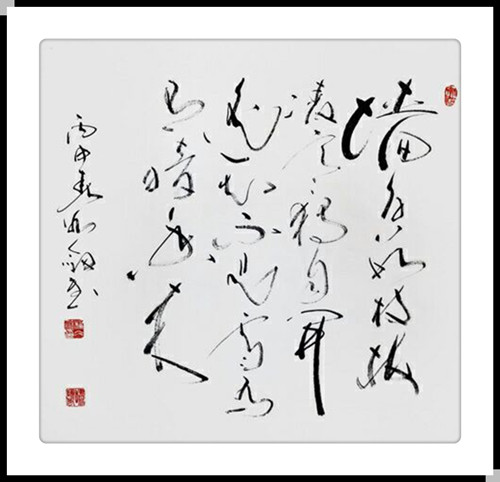 墙角数枝梅
凌寒独自開
遥知不是雪為
有暗香来
丙申春